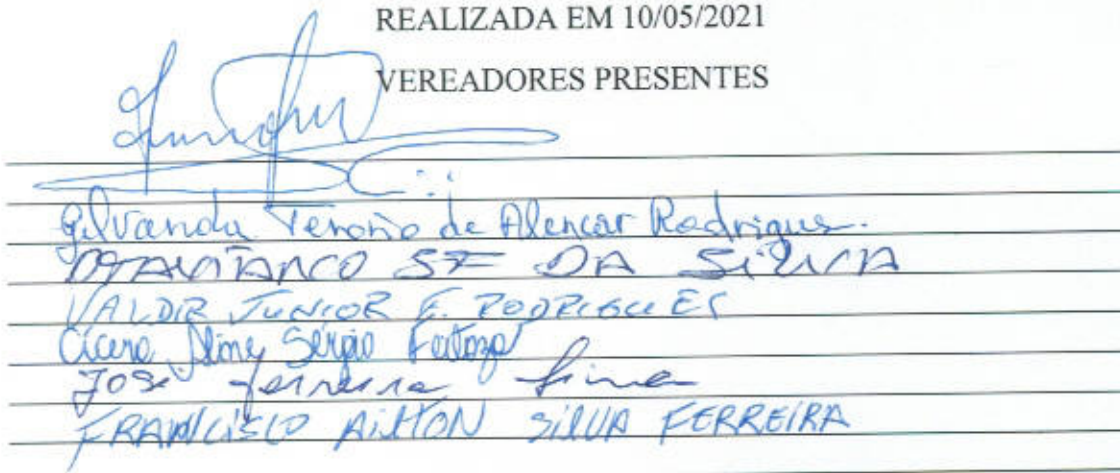 REALIZADA EM 10/05/2021
VEREADORES PRESENTES
Gilvanda Tenorio de Alencar Rodrigues.
DA SILVA
VALDIR JUNIOR F. RODRIGUES
Cicero Aline Sérgio Feitoza
José Ferreira Lima
FRANCISCO AILTON SILVA FERREIRA